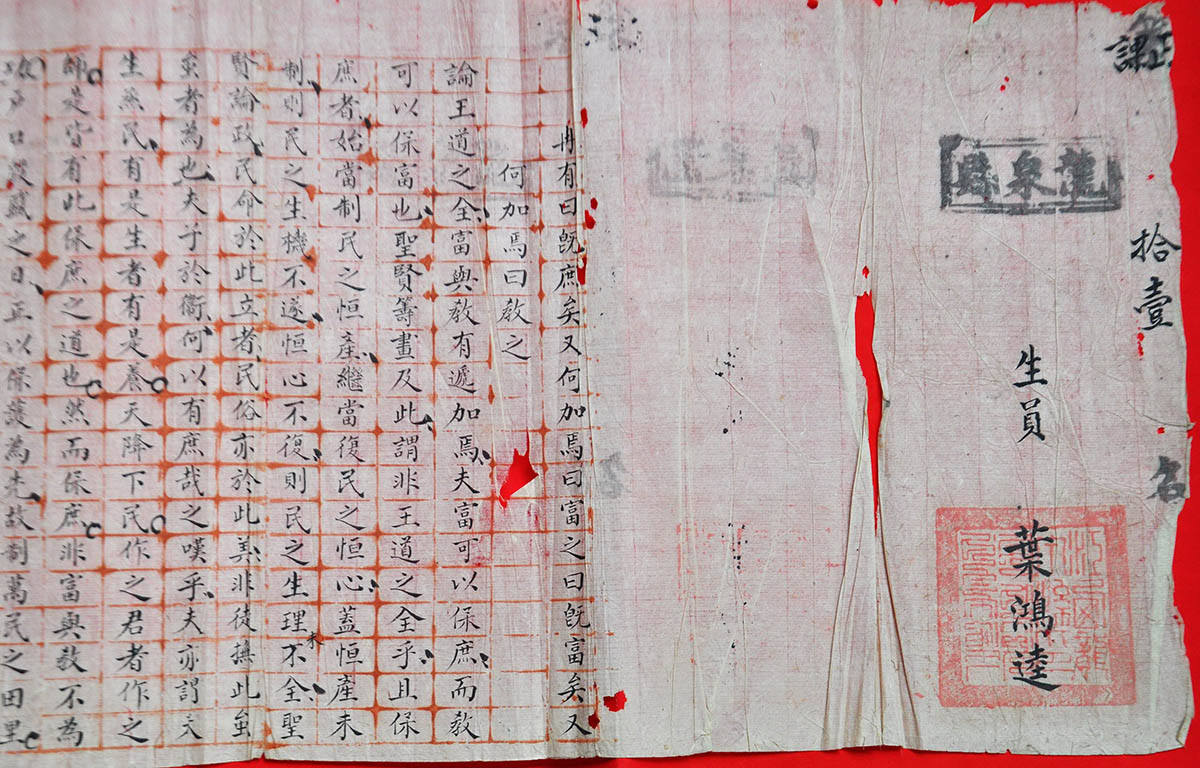 正課
拾壹
名
龍泉縣
生員 葉鴻逵
冉有曰旣庶矣又何加焉曰富之曰旣富矣又
何加焉曰教之
論王道之全富與教有遞加焉夫富可以保庶而教
可以保富也聖賢籌畫及此謂非王道之全乎且保
庶者始當制民之恒產繼當復民之恒心蓋恒產未
制則民之生機不遂恒心不復則民之生理未不全聖
賢論政民命於此立者民俗亦於此美非徒撫此
者為也夫子於衛何以有庶哉之嘆乎夫亦謂天
生烝民有是生者有是養天降下民作之君者作之
師是皆有此保庶之道也然而保庶非富與教不為
戶口殷盛之日正以保護為先故制萬民之田里